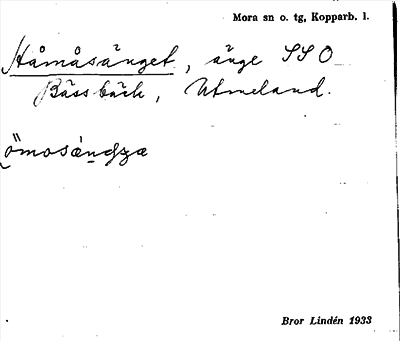 Mora sn o. tg, Kopparb. l.
Håmåsänget, änge SSO
Bässbäck, Utmeland.
ömosàndzæ
Bror Lindén 1933